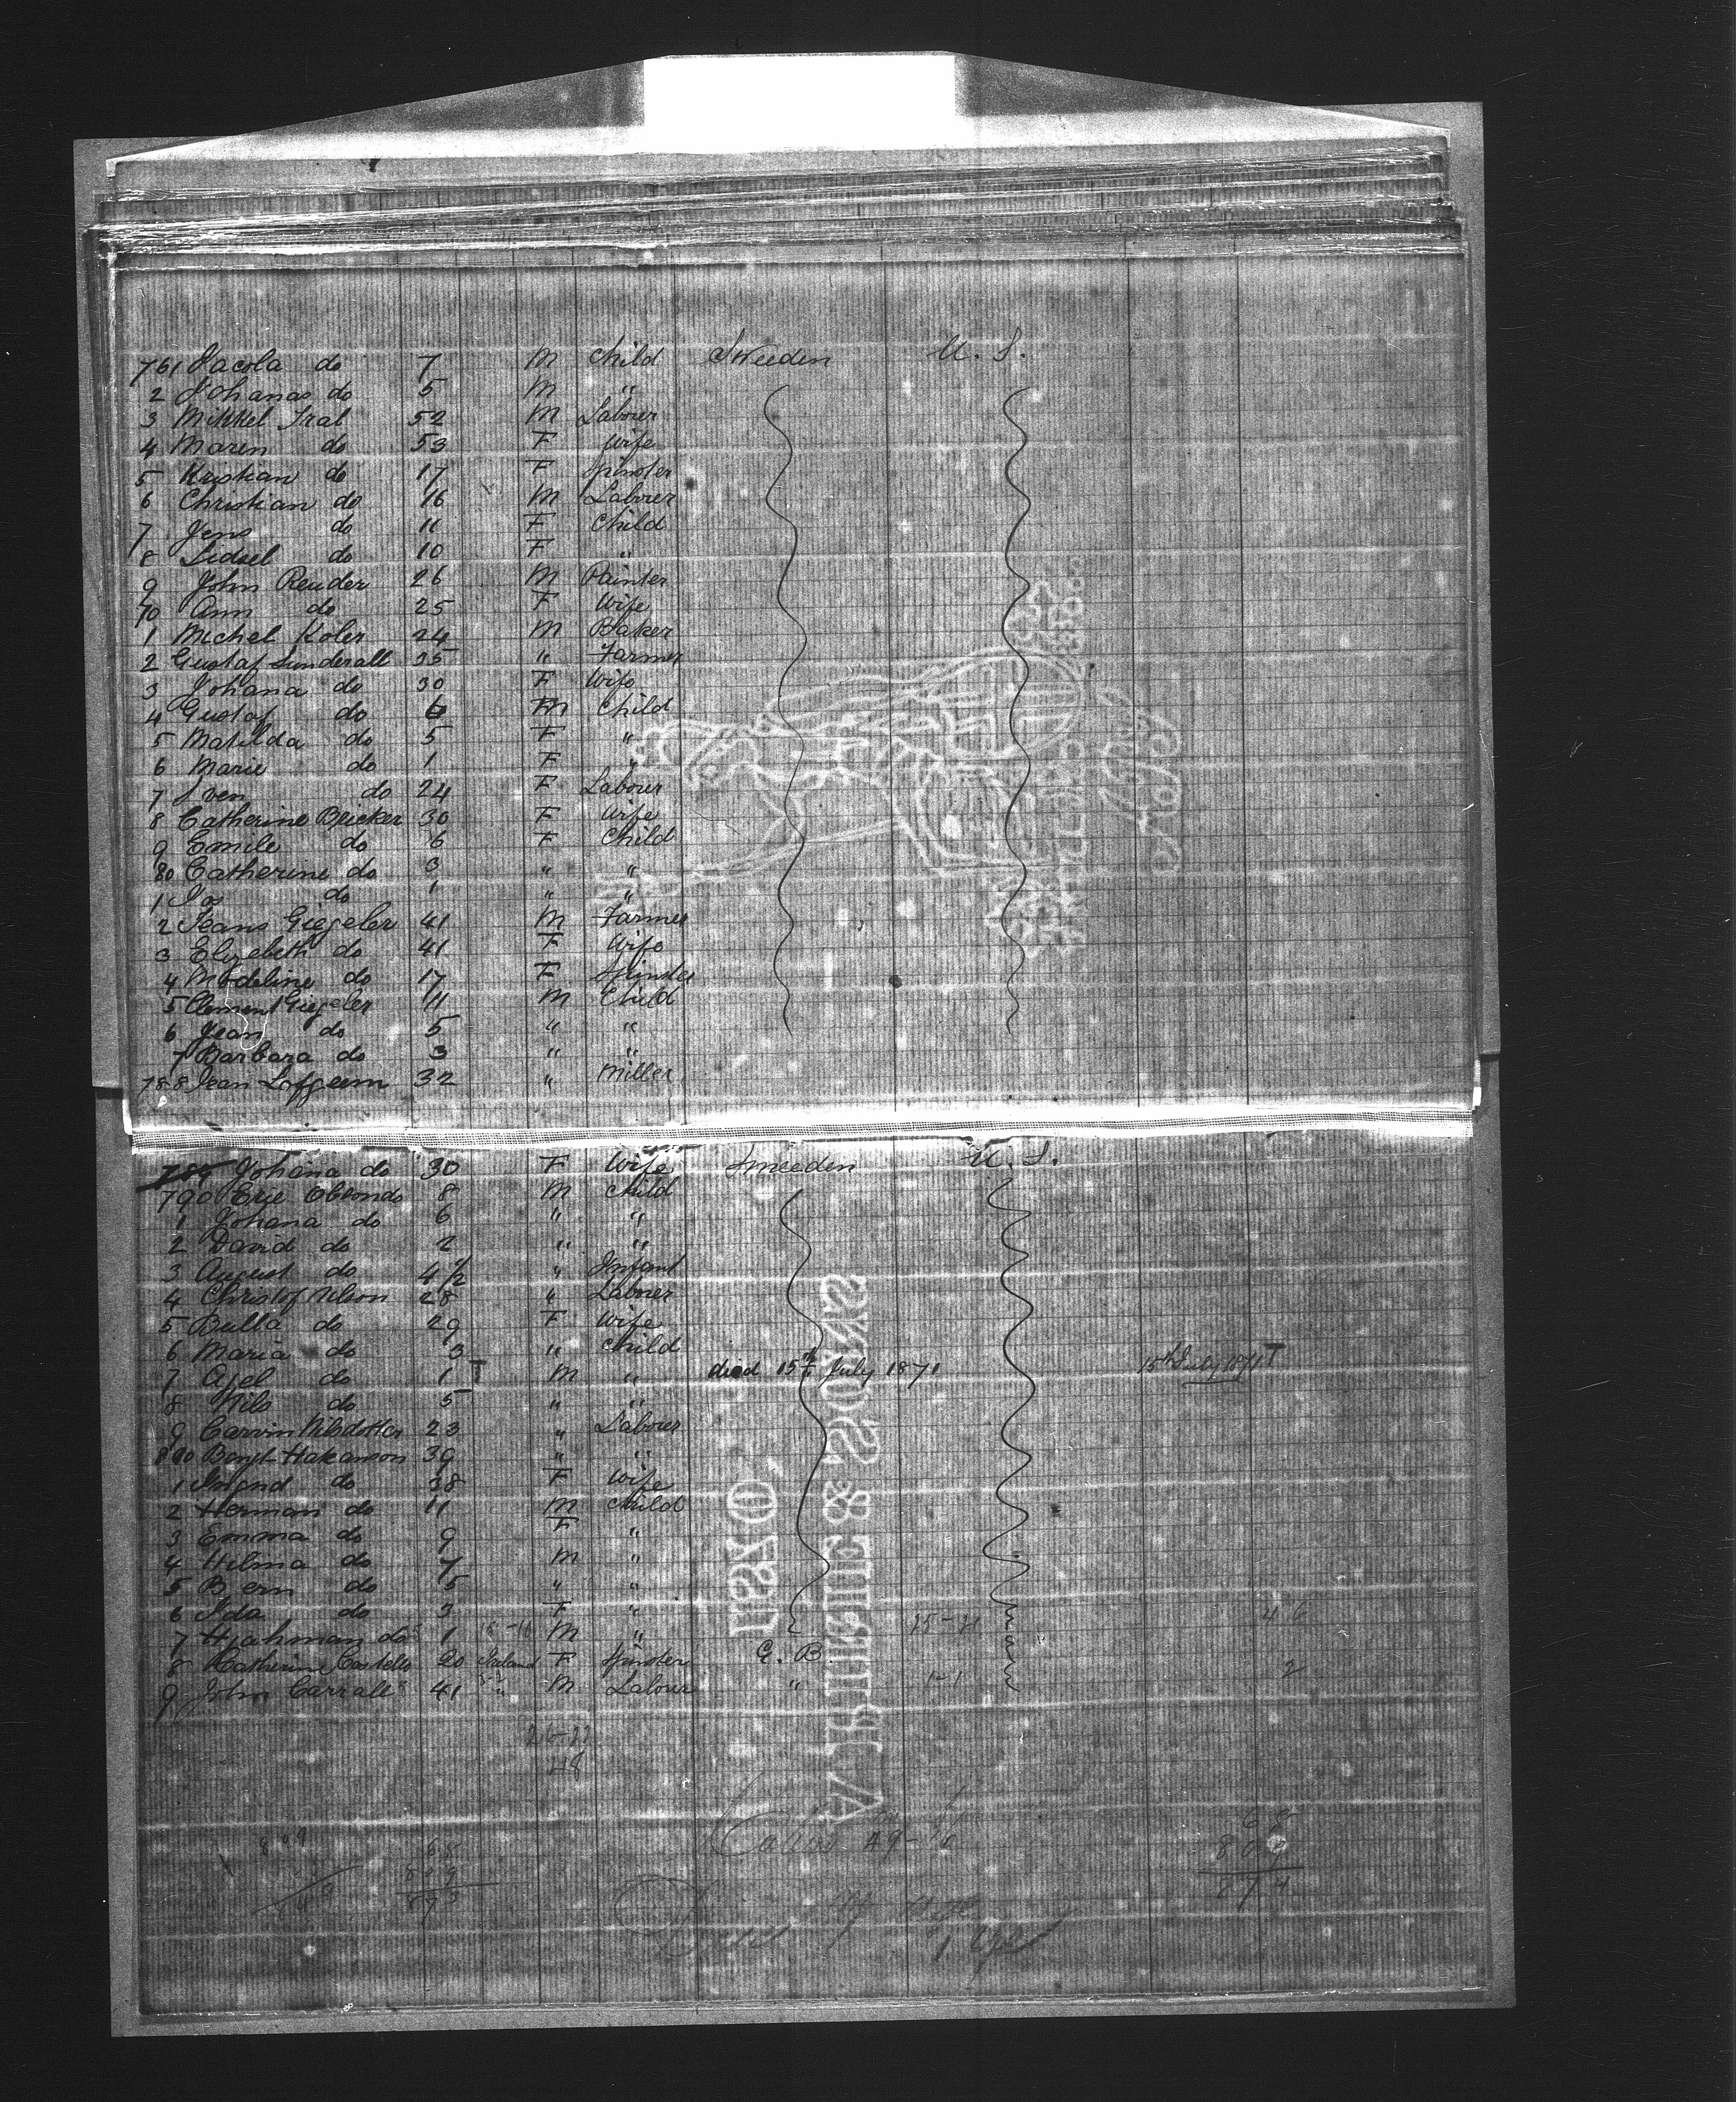 761 Jacola do 7 M Child Sweeden U. S.
2 Johanas do 5 M "
3 Mikkel Iral 52 M Labourer
4 Maren do 53 F Wife
5 Kristian do 17 F Spinster
6 Christian do 16 M Labourer
7 Jens do 11 F Child
8 Lidsel do 10 F "
9 John Reuder 26 M Painter
70 Ann do 25 F Wife
1 Michel Koler 24 M Baker
2 Gustaf Sunderall 35 " Farmer
3 Johana do 30 F Wife
4 Gustaf do 6 M Child
5 Matilda do 5 F "
6 Marie do 1 F "
7 Sven do 24 F Labour
8 Catherine Beicker 30 F Wife
9 Emile do 6 F Child
80 Catherine do 3 " "
1 Jos do 1 " "
2 Jeans Giegeler 41 M Farmer
3 Elizebeth do 41 F Wife
4 Modeline do 17 F Spinster
5 Clement Giegeler 11 M Child
6 Jean do 5 " "
7 Barbara do 3 " "
788 Jean Lofgeem 32 " Miller
789 Johana do 30 F Wife Sweeden U. S.
790 Eric Obsondo 8 M Child
1 Johana do 6 " "
2 David do 2 " "
3 August do 4 1/2 " Infant
4 Christof Nelson 28 " Labourer
5 Bulla do 29 F Wife
6 Maria do 3 " Child
7 Axel do 1 T M " died 15th July 1871 15th July 1871 T
8 Nils do 5 " "
9 Carvin Nilsdotter 23 " Labourer
800 Bengt Hakanson 39 " "
1 Ingrid do 38 F Wife
2 Herman do 11 M Child
3 Emma do 9 F "
4 Hilma do 7 M "
5 Bern do 5 " "
6 Ida do 3 F "
7 Hjahman do 1 M " 46
8 Katherine Costello 20 Ireland F Spinster G. B. 2
9 John Carrall 41 " M Labour " 1-1
26-22
48
809
65
809
873
65
809
874